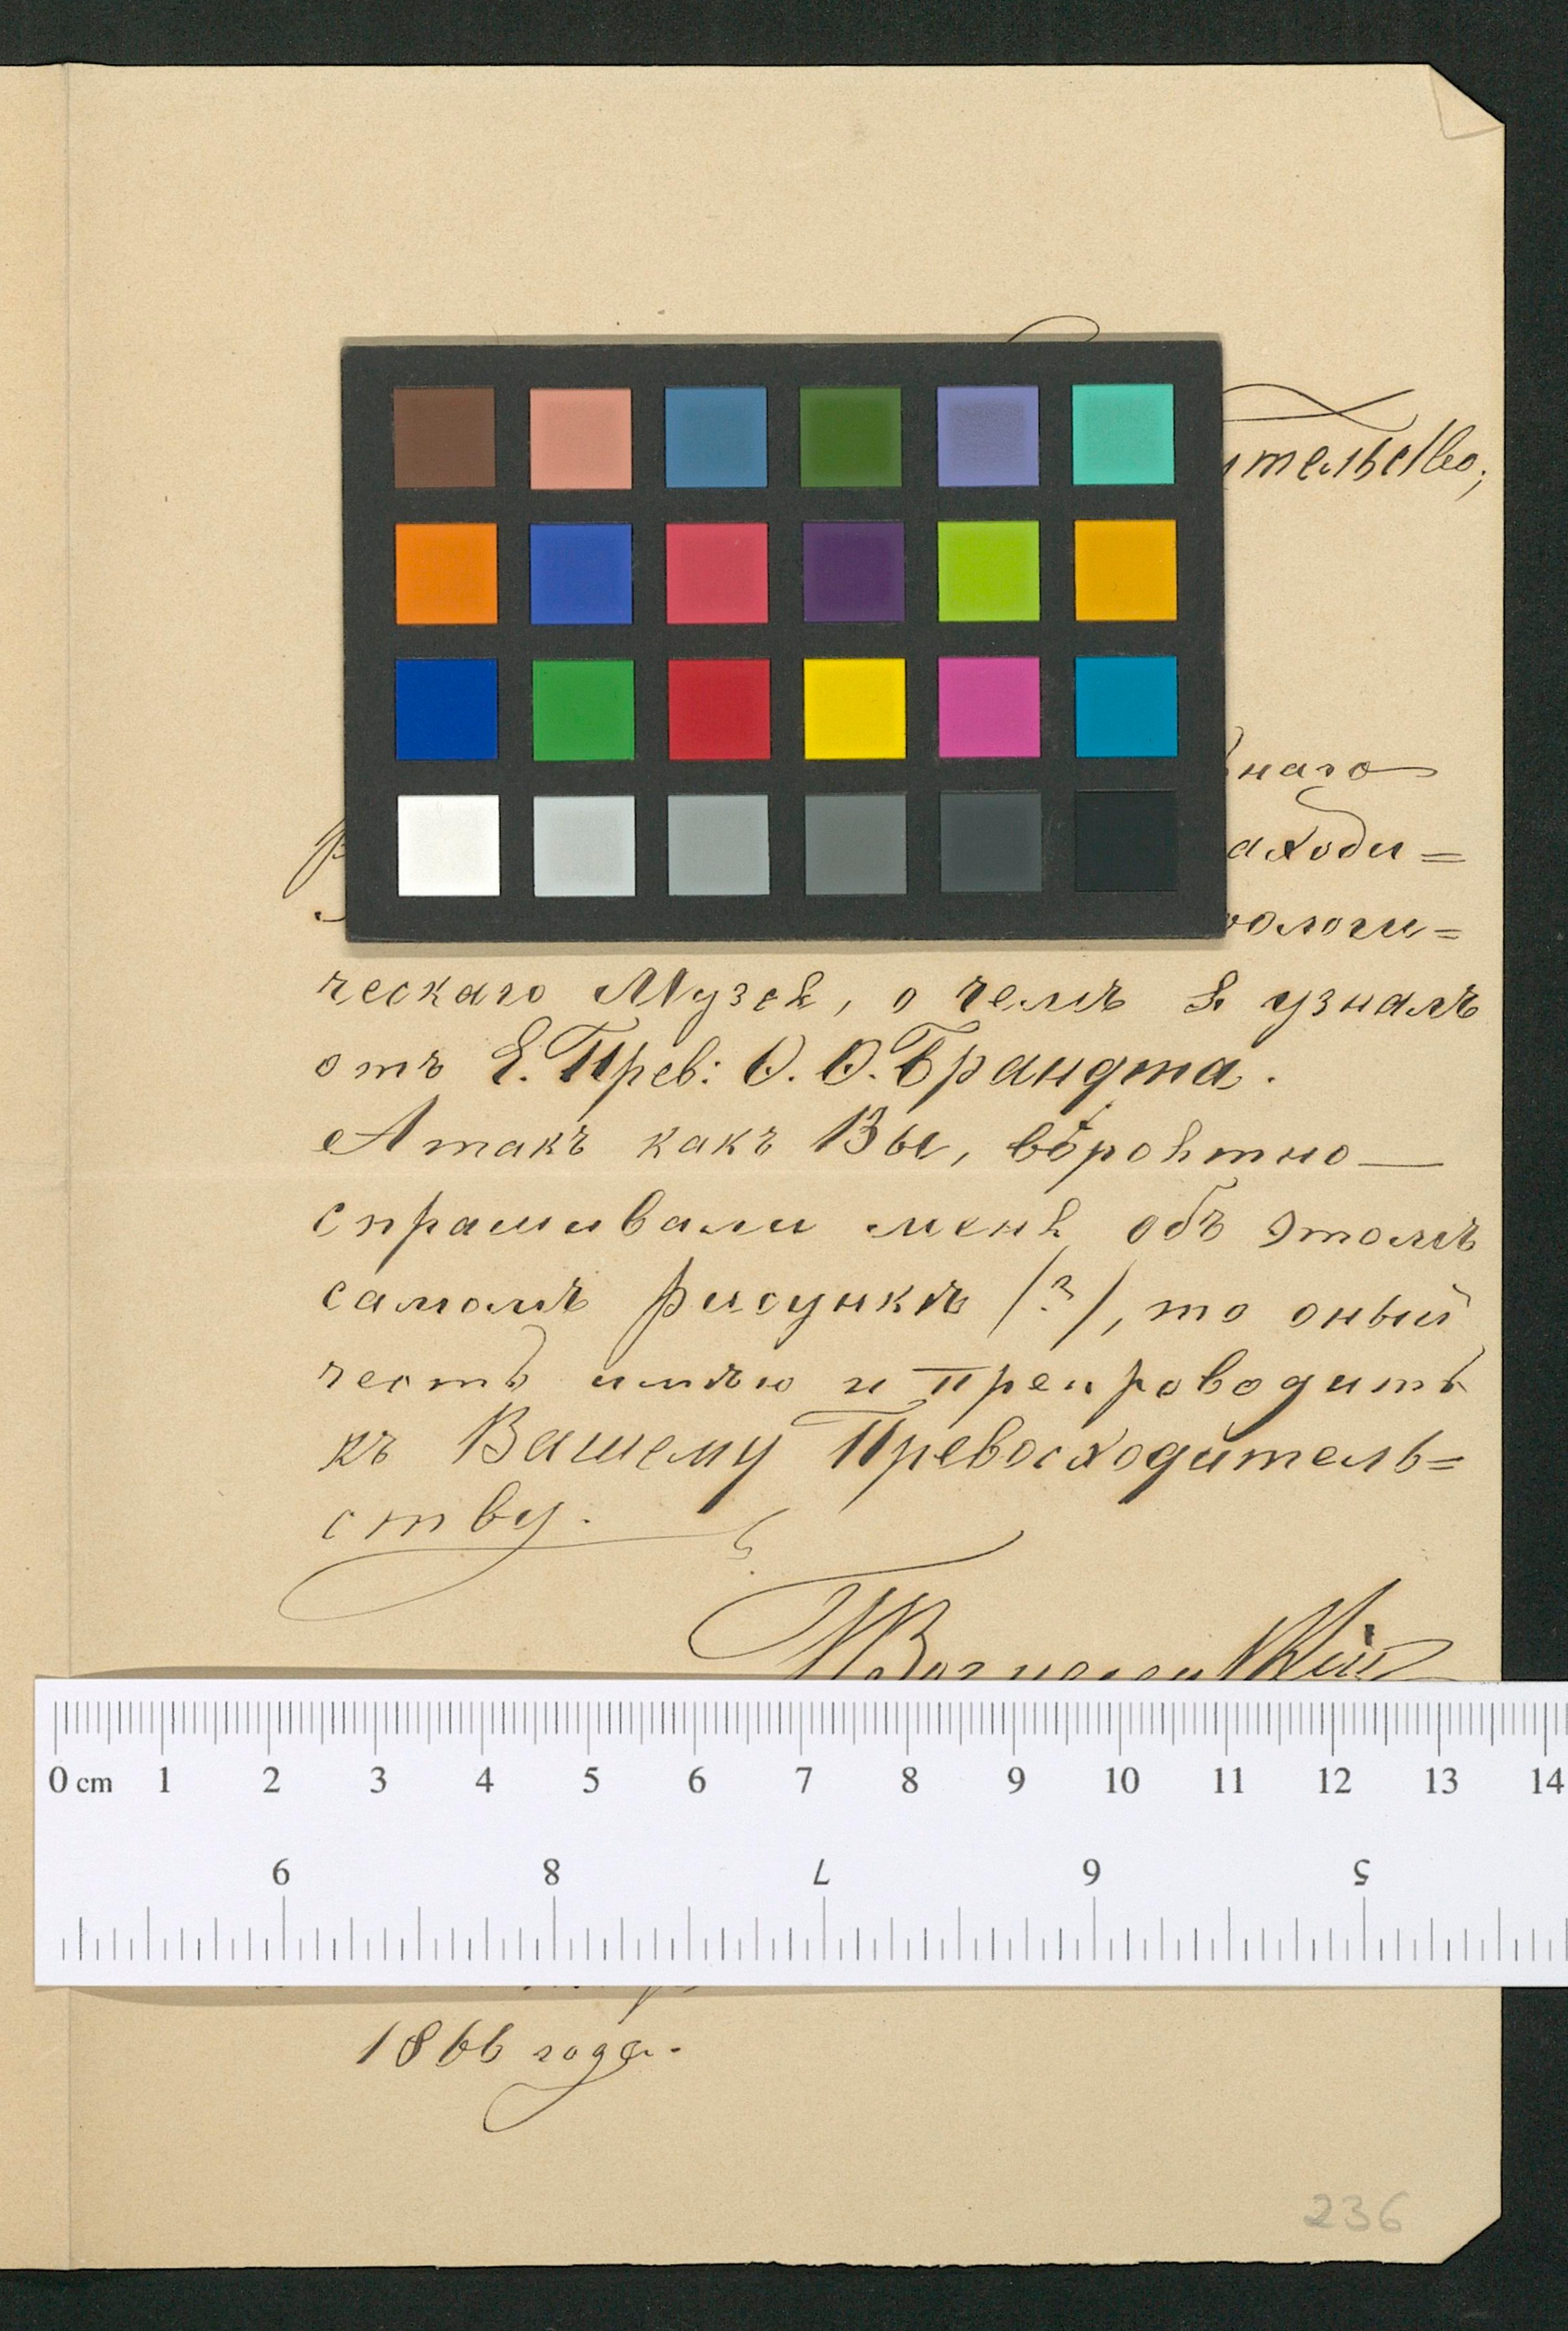 ительство;
наго
аходи=
ологи=
ческаго Музея, о чемъ я узналъ
отъ Е. Прев: Ѳ. Ѳ. Брандта.
А такъ какъ Вы, вѣроятно
спрашивали меня объ этомъ
самомъ рисункѣ (?), то оный
честь имѣю и препроводить
къ Вашему Превосходитель=
ству.
0 cm 1 2 3 4 5 6 7 8 9 10 11 12 13 14
9 8 7 6 5
1866 года.
236